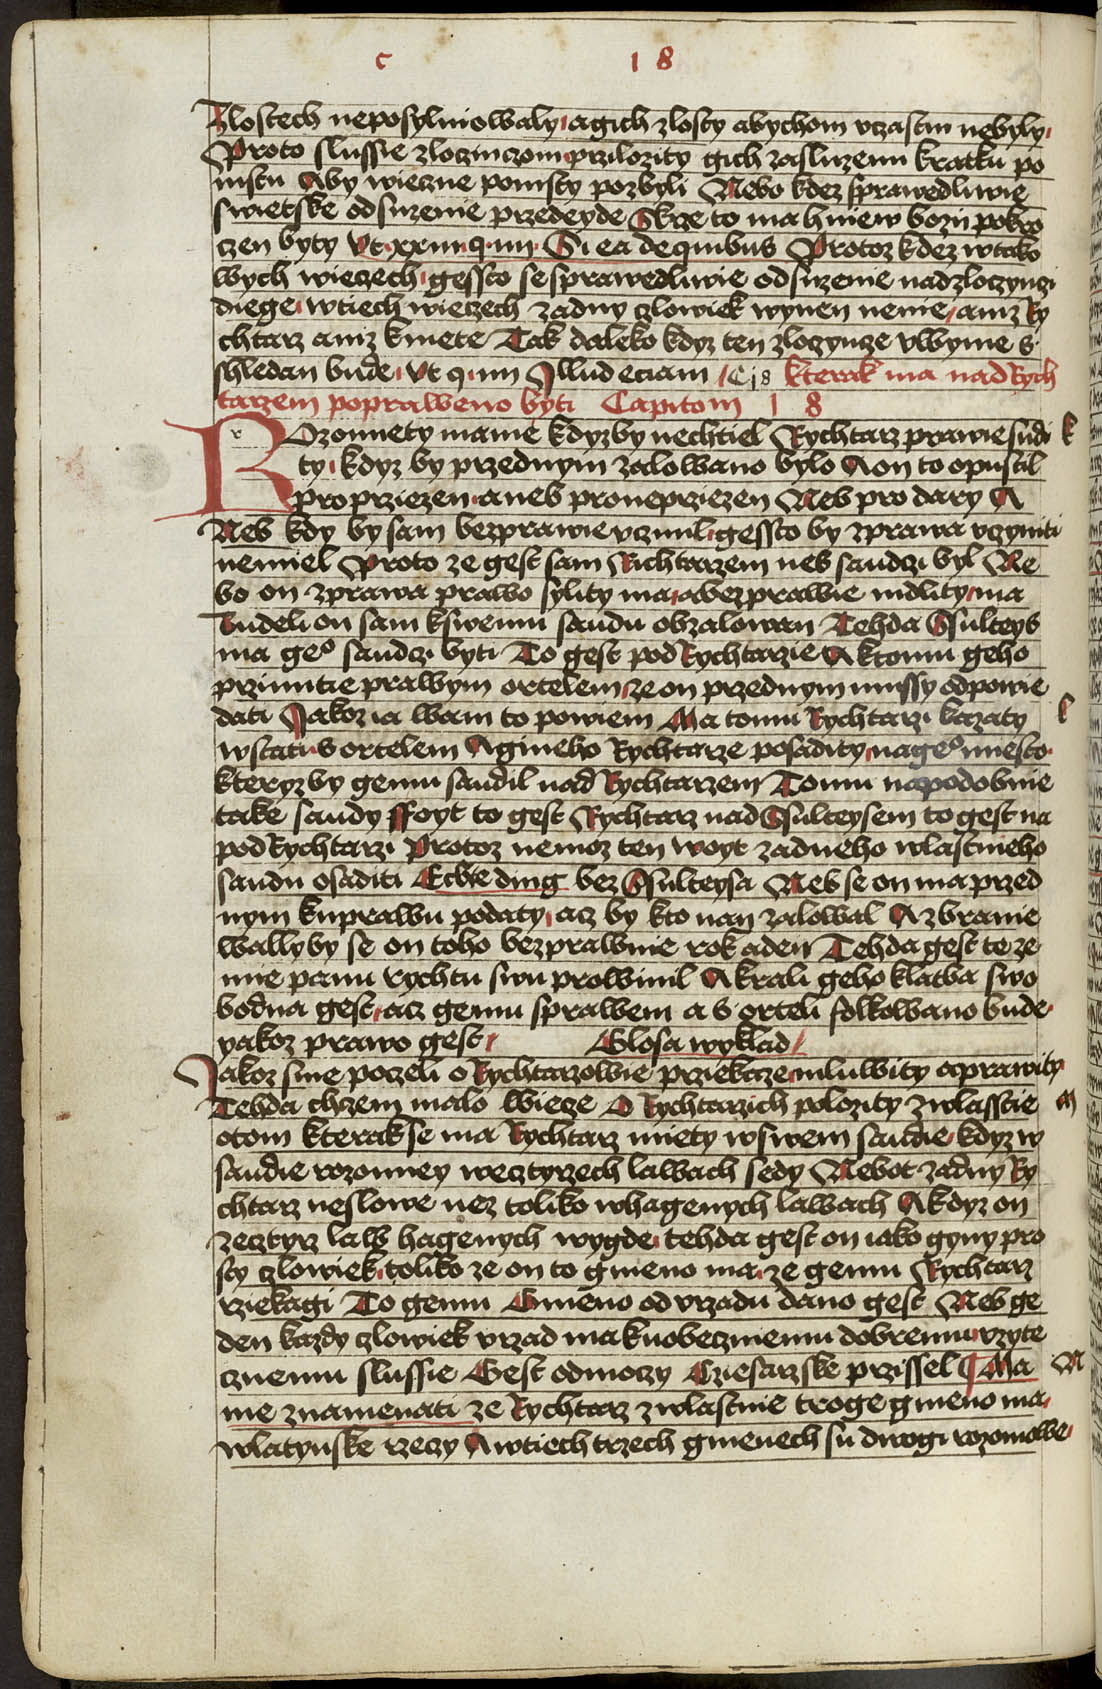 c 18
Zlostech neposylniowaly agich zlosty abychom vczastni nebyly
Proto slussie zloczinczom przilozity gich zasluzenu kratku po
mstu Aby wieczne pomsty pozbyli Nebo kdez sprawedliwie
swietske odsuzenie przedeyde Skrze to ma hniew bozy pokro
czen byty Vt xxiiii q iiii Si ea de quibus Protoz kdez wtako
wych wieczech gessto se sprawedliwie odsuzenie nad zloczynczi
diege wtiech wieczech zadny czlowiek wynen nenie aniz Ry
chtarz aniz kmete Tak daleko kdyz ten zloczyncze vwynie s
shledan bude Vt q iiii Illud eciam C 18 kterak ma nad Rych
tarzem popraweno byti Capitom 18
ROzomnety mame kdyzby nechtiel Rychtarz prawie sudi k
ty kdyz by przednym zalowano bylo A on to opustil
pro przezen aneb pro neprziezen Neb pro dary A
Neb kdy by sam bezprawie vczinil gessto by zprawa vczyniti
nemiel Proto ze gest sam Richtarzem neb saudczi byl Ne
bo on zprawa prawo sylity ma abezprawie mdlity ma
Budeli on sam kswemu saudu obzalowan Tehda Ssulteys
ma geo saudczi byti To gest pod Rychtarzie A ktomu geho
przinutie prawym ortelem ze on przednym mussy odpowie
dati Jakoz ia wam to powiem Ma tomu Rychtarzi kazaty l
wstati s ortelem A gineho Rychtarze posadity nageo miesto
kteryzby gemu saudil nad Rychtarzem Tomu napodobnie
take saudy Ffoyt to gest Rychtarz nad Ssulteysem to gest na
podRychtarzi Protoz nemoz ten woyt zadneho wlastnieho
saudu osaditi Echte ding bez Ssulteysa Neb se on ma przed
nym kuprawu podaty acz by kto nan zalowal A zbranie
wallyby se on toho bezprawnie rok aden Tehda gest teze
mie panu rychtu swu prowinil A krali geho klatba swo
bodna gest acz gemu sprawem a s orteli folkowano bude
yakoz prawo gest Glosa wyklad
Jakoz sme poczeli o Rychtarzowie prziekaze mluwity aprawity
Tehda chzem malo wiecze O Rychtarzich polozity zwlasstie m
otom kterak se ma Rychtarz miety wswem saudie kdyz w
saudie rozomney wecztyrzech lawach sedy Nebot zadny Ry
chtarz neslowe nez toliko whagenych lawach A kdyz on
zecztyrz law hagenych wygde tehda gest on iako gyny pro
sty czlowiek toliko ze on to gmeno ma ze gemu Rychtarz
rziekagi To gemu Gmeno od vrzadu dano gest Neb ge
den kazdy czlowiek vrzad ma kuobecznemu dobremu vzyte
cznemu slussie Gest odmoczy Cziesarzske przissel Ma N
me znamenati ze Rychtarz zwlastnie troge gmeno ma
wlatynske rzeczy A wtiech trzech gmenech su dwogi rozomowe